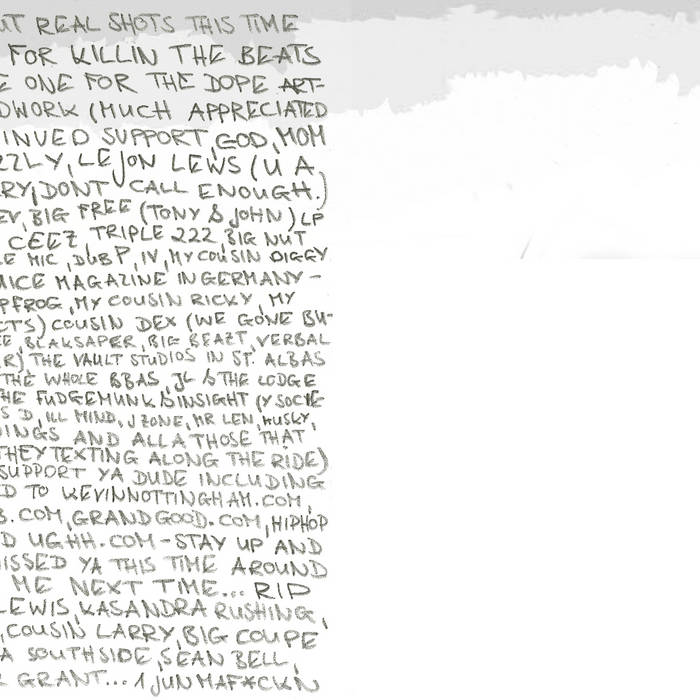 UT REAL SHOTS THIS TIME
FOR KILLIN THE BEATS
E ONE FOR THE DOPE ART-
DWORK (MUCH APPRECIATED
INUED SUPPORT, GOD, MOM
ZZLY, LEJON LEWS (U A
RY, DONT CALL ENOUGH.)
EV, BIG FREE (TONY & JOHN) LP
CEEZ, TRIPLE 222, BIG NUT
LE MIC, DUB P, IV, MY COUSIN DIGGY
MICE MAGAZINE IN GERMANY -
PFROG, MY COUSIN RICKY, MY
CTS) COUSIN DEX (WE GONE BU-
EE, BLAKSAPER, BIG BEAZT, VERBAL
R) THE VAULT STUDIOS IN ST. ALBAS
THE WHOLE BBAS, JL & THE LODGE
HE FUDGEMUNK & INSIGHT (Y SOCIE-
S D, ILL MIND, J ZONE, MR LEN, HUSKY,
INGS AND ALLA THOSE THAT
THEY TEXTING ALONG THE RIDE)
SUPPORT YA DUDE INCLUDING
ED TO KEVINNOTTINGHAM.COM,
B.COM, GRANDGOOD.COM, HIPHOP
D UGHH.COM - STAY UP AND
ISSED YA THIS TIME AROUND
ME NEXT TIME... RIP
LEWIS, KASANDRA RUSHING,
, COUSIN LARRY, BIG COUPE
A SOUTHSIDE, SEAN BELL,
R GRANT... 1 JUN MAF*CKN